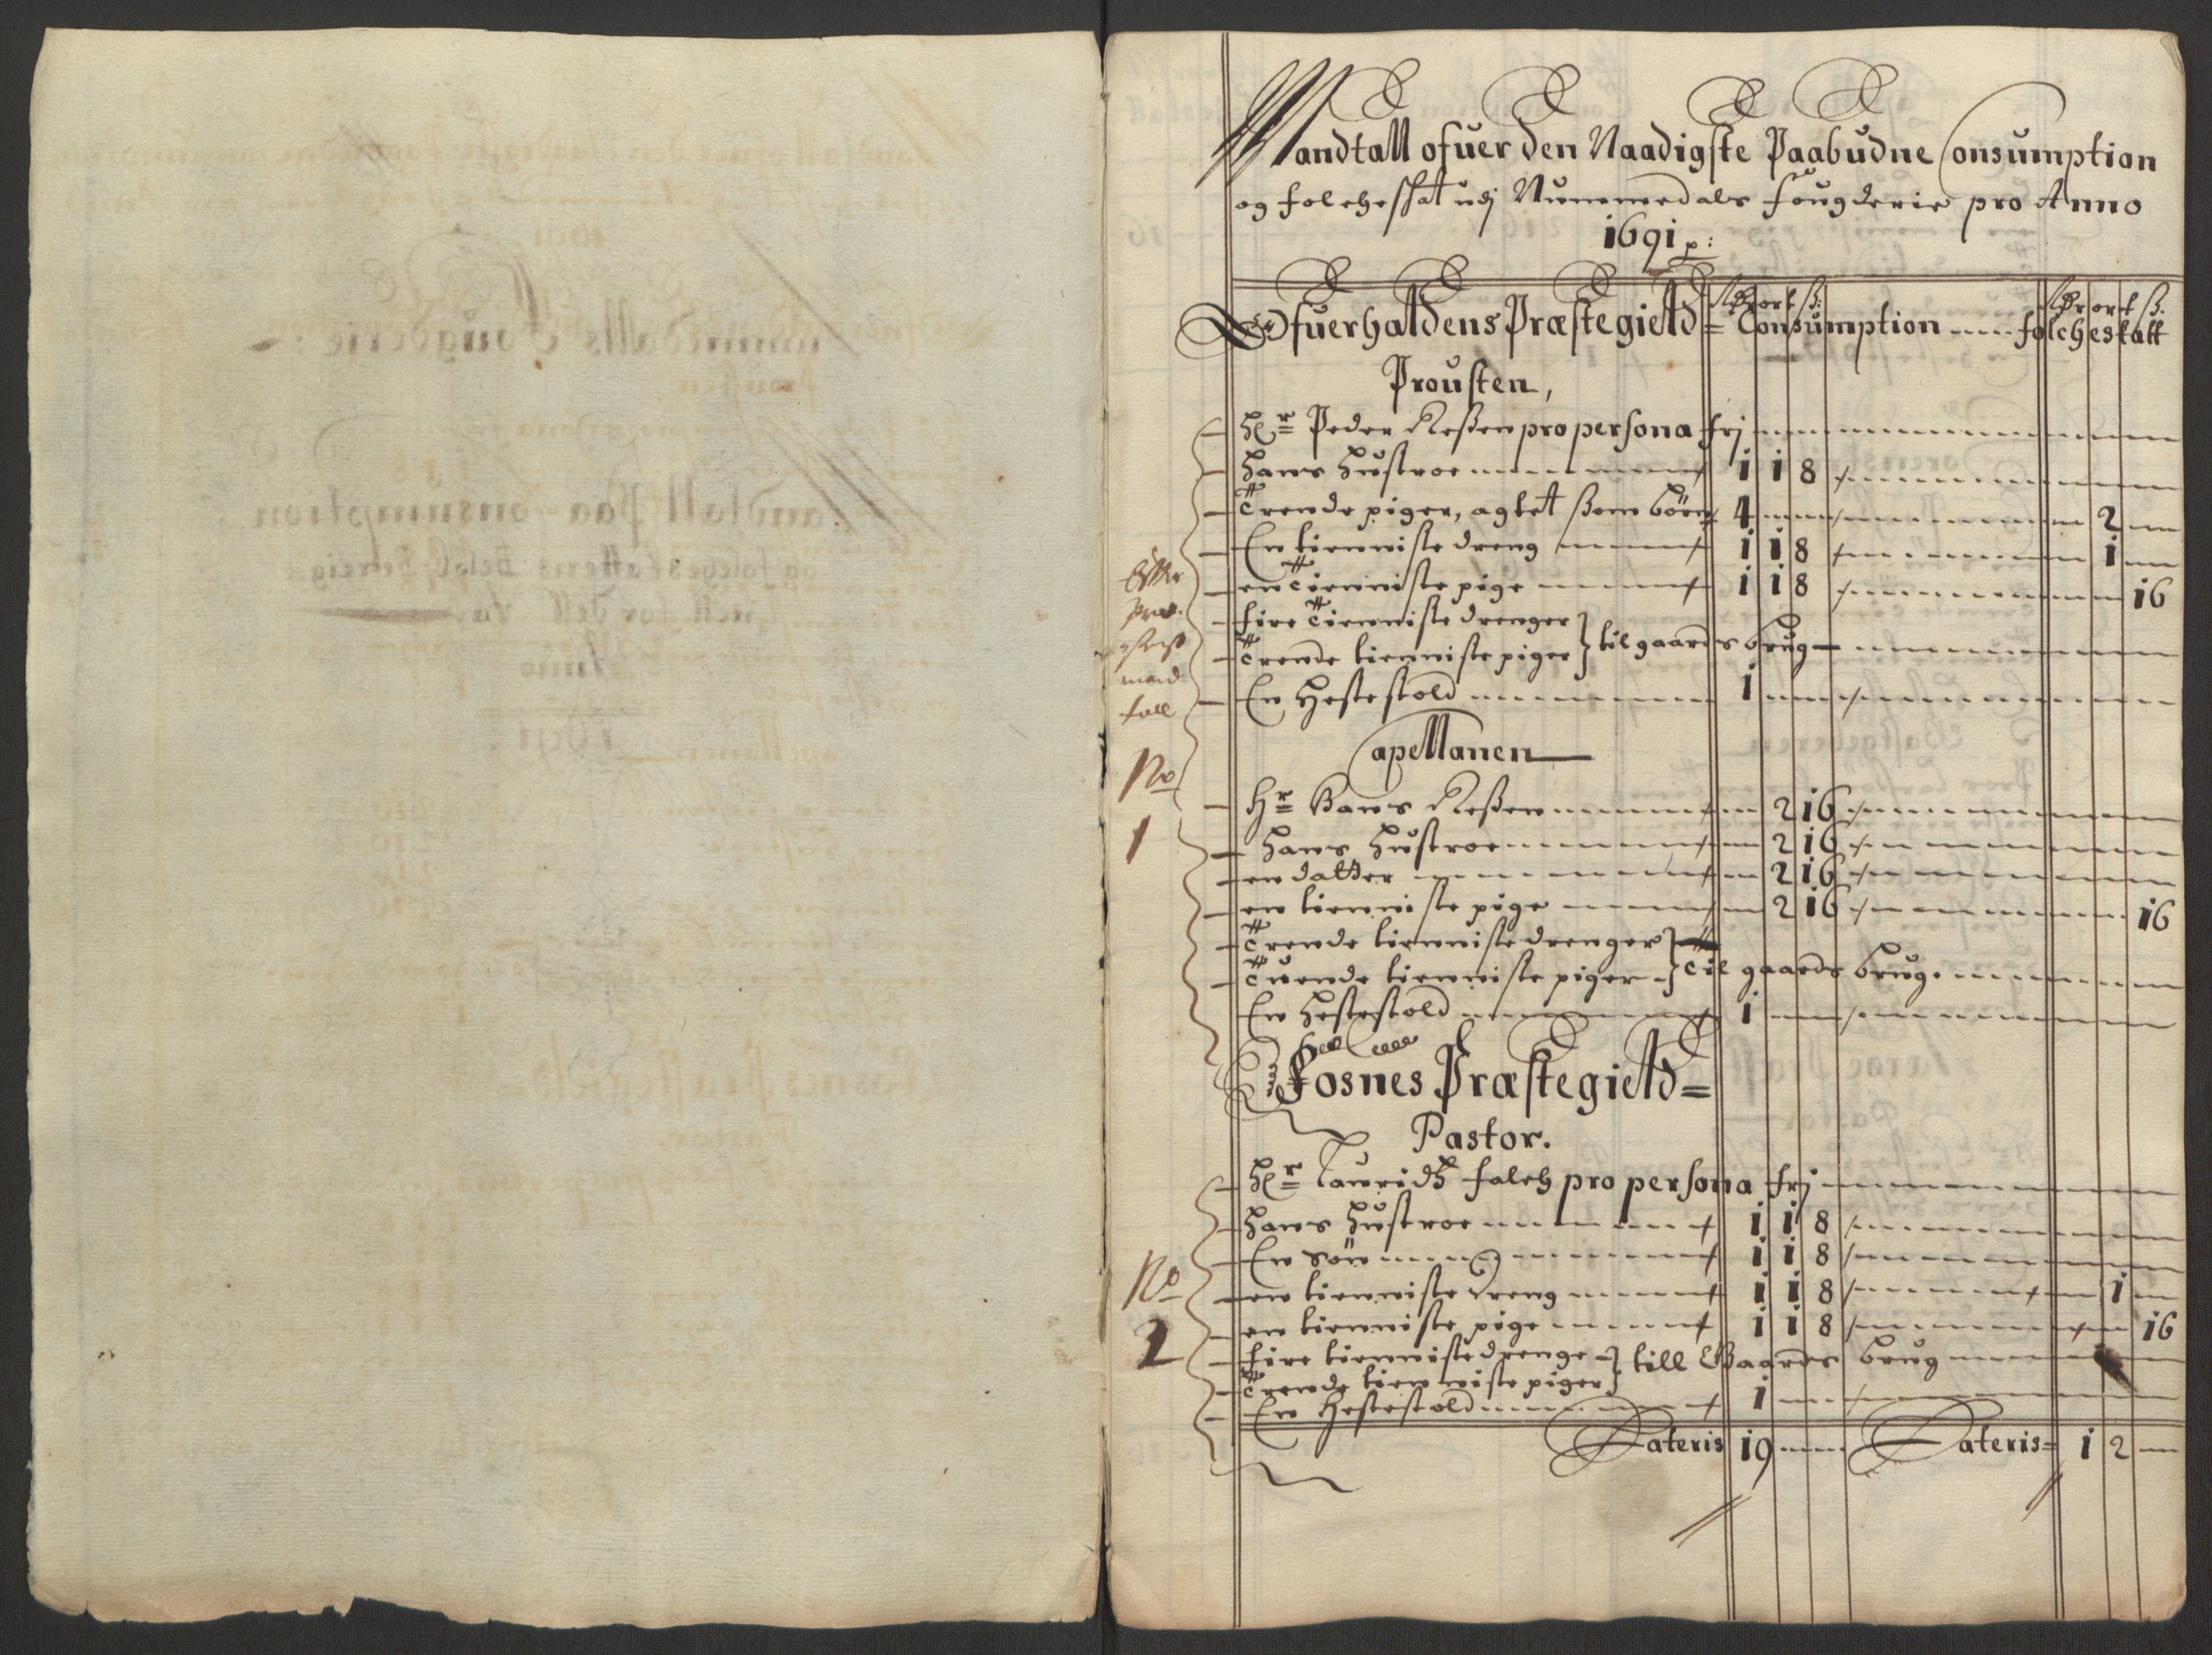 Mandtall ofuer den Naadigste Paabudne Consumption
og folcheskat udj Nummedals fougderie pro Anno
1691 p:
Rdr ort ß: Rdr ort ß.
Ofuerhaldens Præstegield = Consumption ---- folcheskatt
Prousten,
Hr Peder Reßen pro persona frj
Hans Hustroe 1 1 8
Trende piger, agtet ßom börn 4 2
En tienniste dreng 1 1 8 1
en tienniste pige 1 1 8 16
fire tienniste drenger
Trende tienniste piger } til gaards brug
En Hestestold 1
Capellanen
No
1
Hr Hans Reßen 2 16
Hans Hustroe 2 16
en datter 2 16
en tienniste pige 2 16 16
Trende tienniste drenger
Tuende tienniste piger } til gaards brug.
En Hestestold 1
Fosnes Præstegield =
Pastor.
Hr Lauridtz falch pro persona frj
Hans Hustroe 1 1 8
En Sön 1 1 8
No
2
en tienniste dreng 1 1 8 1
en tienniste pige 1 1 8 16
fire tienniste drenge } till Gaards brug
Trende tienniste piger }
En Hestestold 1
Lateris 19 Lateris = 1 2